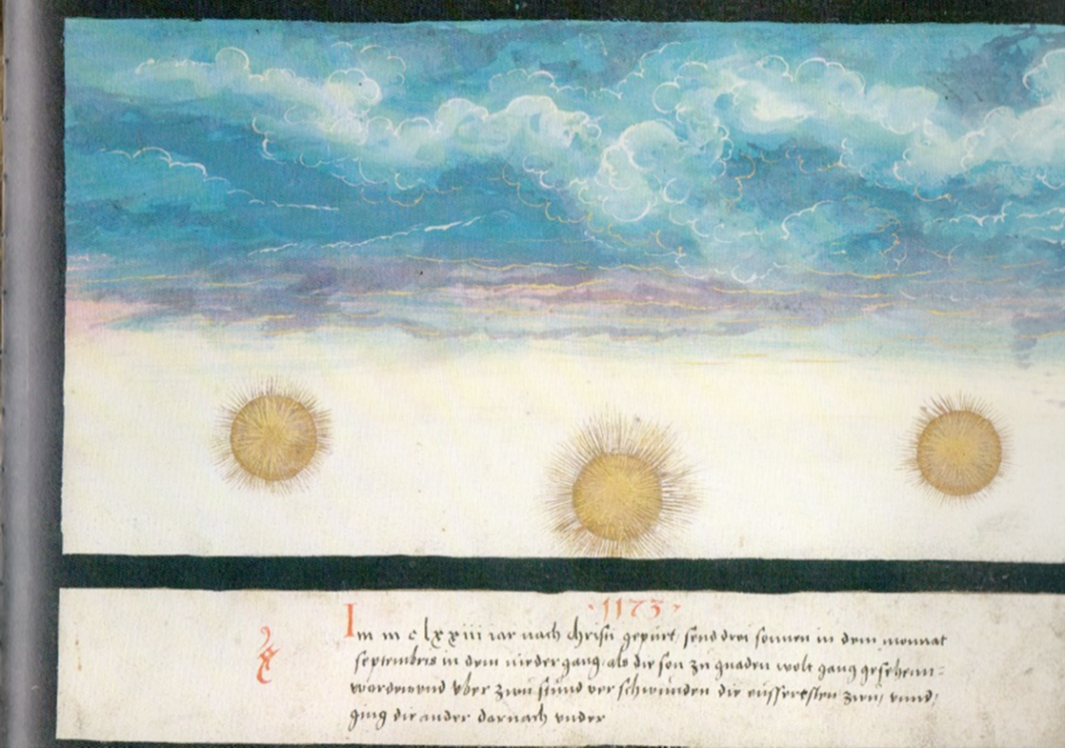 ·1173·
Im m c lxxiii iar nach christi gepürt send drei sonnen in dem monnat
septembris in dem nider gang als die son zu gnaden wolt gang gesehenn=
worden vnnd vber zwu stund verschwunden die eüsseresten zwu, vnnd,
ging die ander darnach vnder